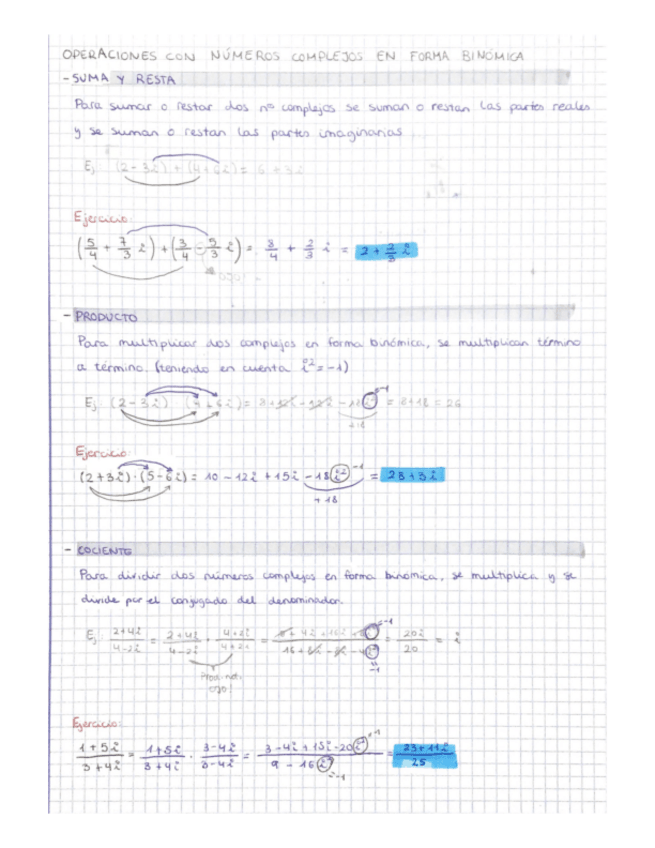 OPERACIONES CON NÚMEROS COMPLEJOS EN FORMA BINÓMICA
- SUMA Y RESTA
Para sumar o restar dos nos complejos se suman o restan las partes reales
y se suman o restan las partes imaginarias
Ej: (2-3i) + (4+6i) = 6+3i
Ejercicio:
(5/4 + 7/3 i) + (3/4 - 5/3 i) = 8/4 + 2/3 i = 2 + 2/3 i
- PRODUCTO
Para multiplicar dos complejos en forma binómica, se multiplican término
a término. (teniendo en cuenta i²=-1)
Ej: (2-3i) (4+6i) = 8+12i-12i-18i² = 8+18 = 26
-1
+18
Ejercicio:
(2+3i)·(5-6i) = 10 - 12i + 15i - 18i² = 28+3i
-1
+18
- COCIENTE
Para dividir dos números complejos en forma binómica, se multiplica y se
divide por el conjugado del denominador.
Ej: 2+4i/4-2i = 2+4i/4-2i · 4+2i/4+2i = 20i/20 = i
=-1
Prod. not.
ojo!
Ejercicio:
1+5i/3+4i = 1+5i/3+4i · 3-4i/3-4i = 3-4i+15i-20i²/9-16i² = 23+11i/25
=-1